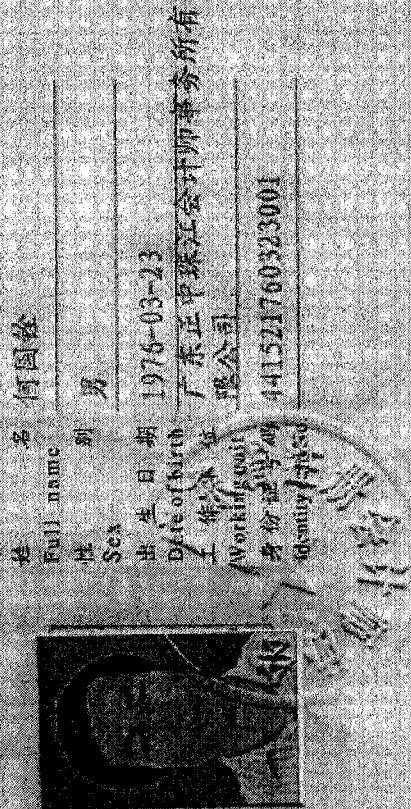 姓 名 何国铨
Full name
性 别 男
Sex
出 生 日 期 1976-03-23
Date of birth
工 作 单 位 广东正中珠江会计师事务所有
Working unit 限公司
身份证号码 441521760323001
Identity card